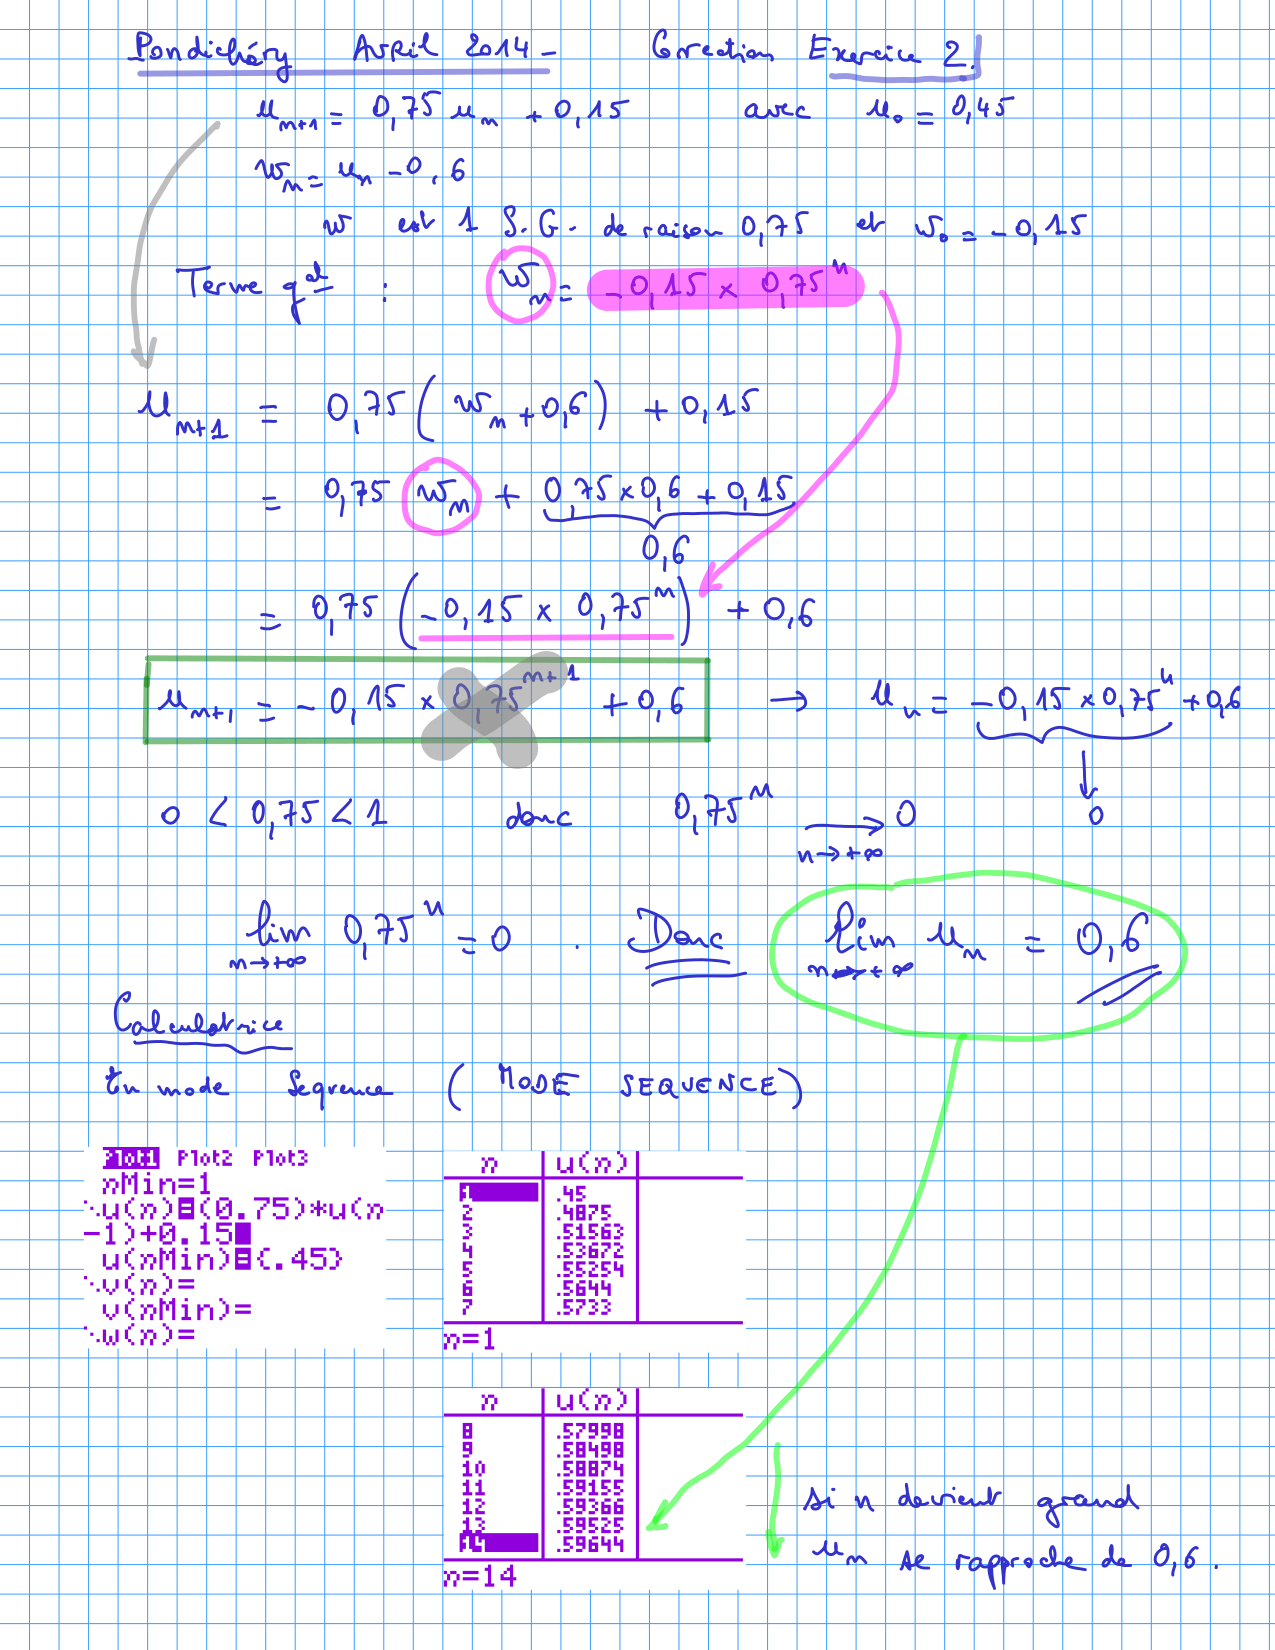 Pondichéry Avril 2014 - Correction Exercice 2.
u_{n+1} = 0,75 u_n + 0,15 avec u_0 = 0,45
w_n = u_n - 0,6
w est 1 S.G. de raison 0,75 et w_0 = -0,15
Terme g^{al} : w_n = -0,15 × 0,75^n
u_{n+1} = 0,75 (w_n + 0,6) + 0,15
= 0,75 w_n + 0,75 × 0,6 + 0,15
0,6
= 0,75 (-0,15 × 0,75^n) + 0,6
u_{n+1} = -0,15 × 0,75^{n+1} + 0,6 → u_n = -0,15 × 0,75^n + 0,6
0 < 0,75 < 1 donc 0,75^n → 0 0
n→+∞
lim 0,75^n = 0 . Donc lim u_n = 0,6
n→+∞ n→+∞
Calculatrice
En mode Sequence (MODE SEQUENCE)
Plot1 Plot2 Plot3
nMin=1
u(n)=(0.75)*u(n
-1)+0.15
u(nMin)={.45}
v(n)=
v(nMin)=
w(n)=
n u(n)
1 .45
2 .4875
3 .51563
4 .53672
5 .55254
6 .5644
7 .5733
n=1
n u(n)
8 .57998
9 .58498
10 .58874
11 .59155
12 .59366
13 .59525
14 .59644
n=14
si n devient grand
u_n se rapproche de 0,6.